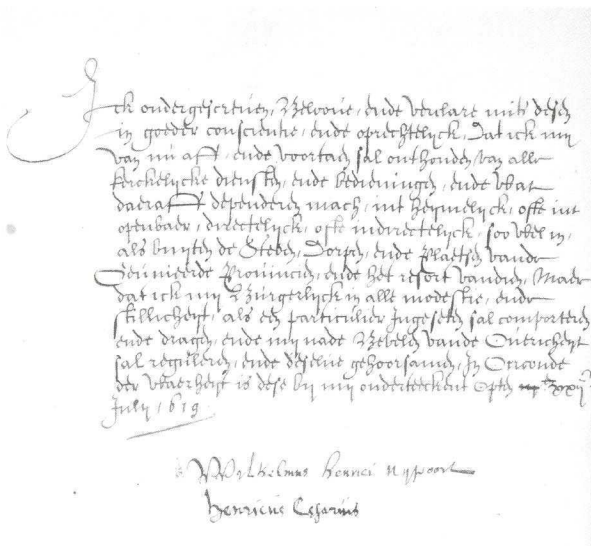 Ick ondergescreven, Belove, ende verclare mits desen
in goeder conscientie, ende oprechtelyck, Dat ick my
van nu aff, ende voortaen sal onthouden, van alle
kerckelycke diensten, ende bedieningen, ende wat
daeraff dependeren mach, int heymelyck, ofte int
openbaer, directelyck, ofte indirectelyck, soo wel in,
als buyten de Steden, Dorpen, ende Plaetsen vande
Geunieerde Provincien, ende het resort vandien, Maer
dat ick my Burgerlyck in alle modestie, ende
stillicheyt, als een particulier Ingeseten sal comporteren
ende dragen, ende my nade Bevelen vande Overicheyt
sal reguleren, ende deselve gehoorsamen, In Oirconde
der waerheyt is dese by my onderteeckent Opten xxii
July 1619.
Wylhelmus Henrici Nypoort
Henricus Cesarius